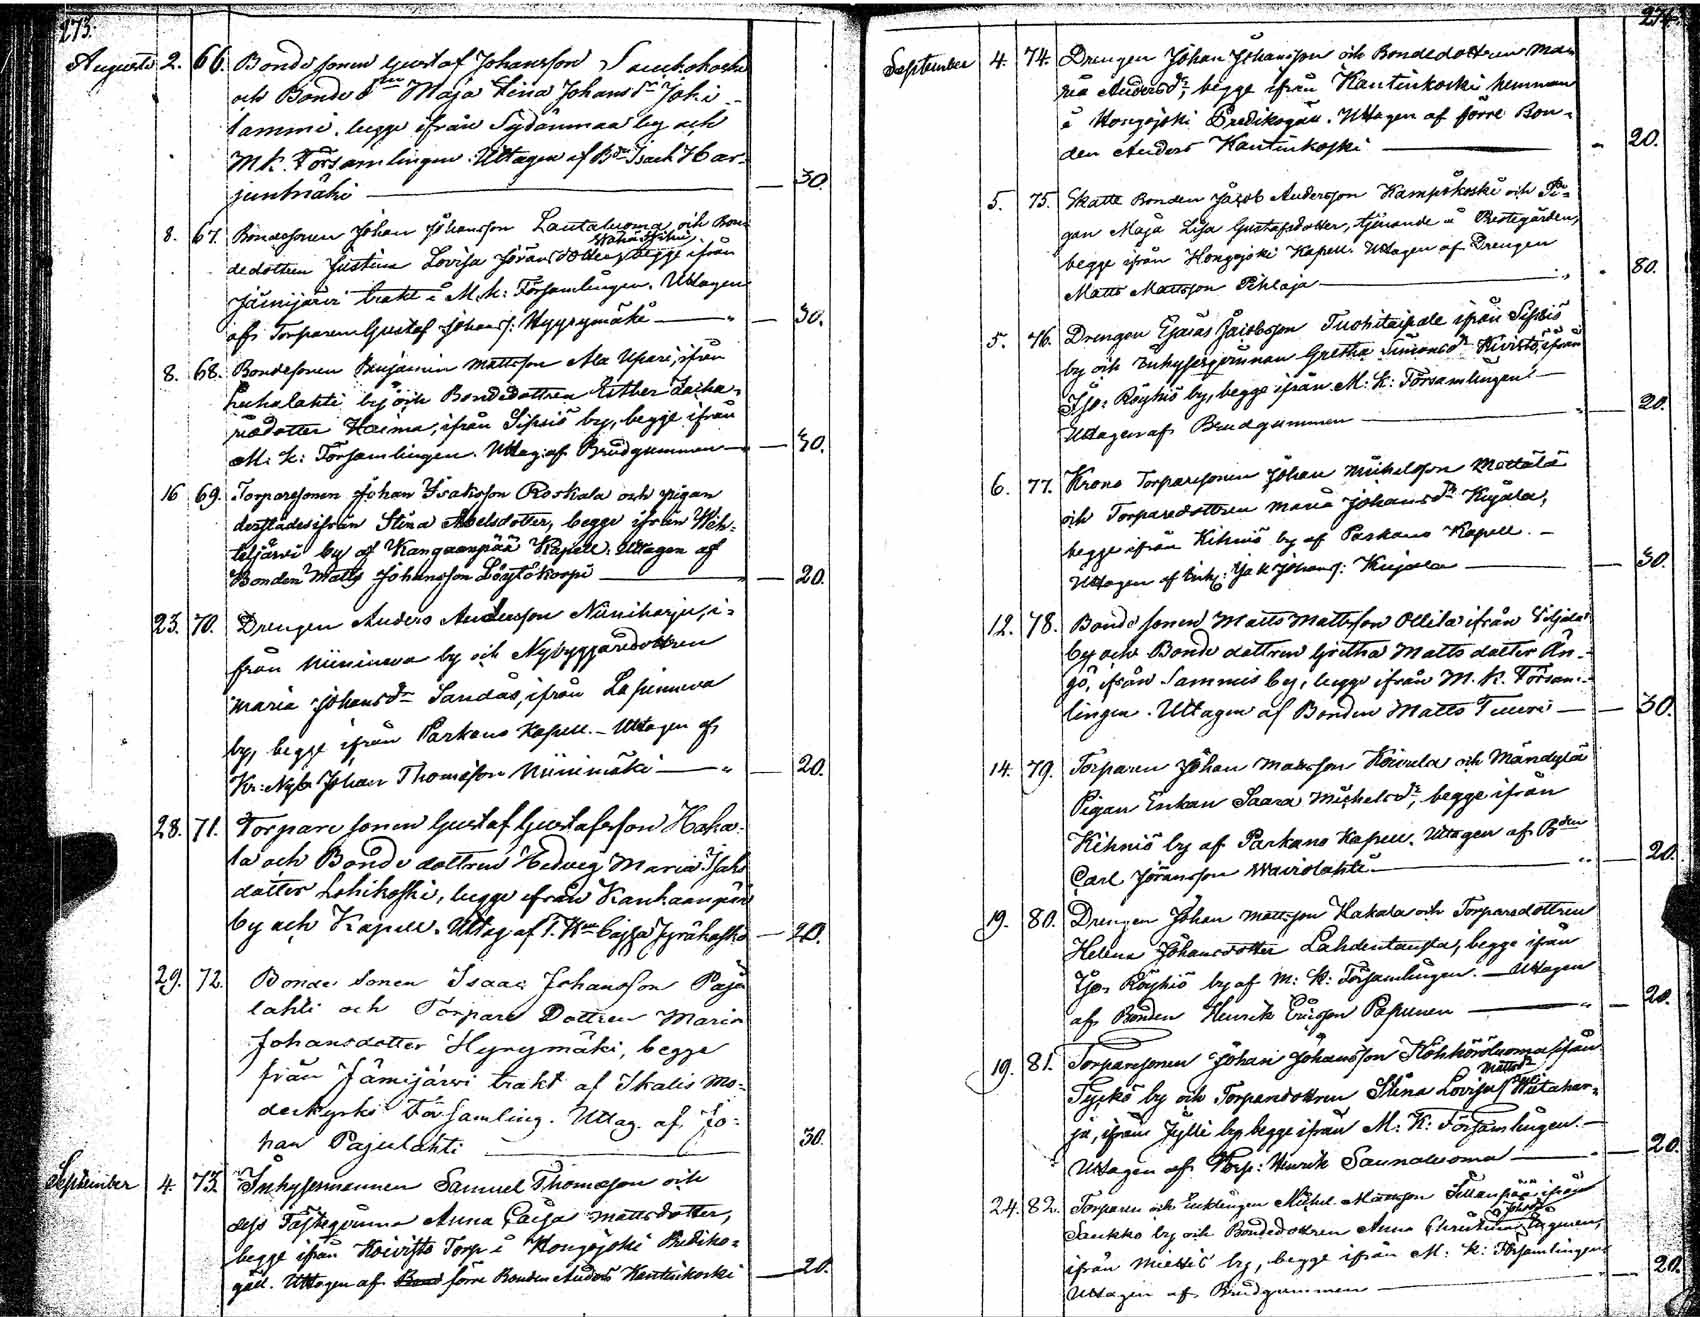 273.
Augusti 2. 66. Bondesonen Gustaf Johansson
och Bonde dn Maja Stina Johansdr Joki-
lammi, begge ifrån Sydänmaa by och
M.k. Församlingen. Uttagen af Bdn Isack Har-
junmäki — 30.
8. 67. Bondesonen Johan Johansson Lantaluoma och Bon-
dedottren Justina Lovisa Jöransdotter begge ifrån
Jämijärvi trakt i M.k: Församlingen. Uttagen
af Torparen Gustaf Johanss: Hyyrymäki — " — 30.
8. 68. Bondesonen Benjamin Mattsson Ala Upari, ifrån
by och Bondedottren Esther Zacha-
riædotter Haima, ifrån Sipsiö by, begge ifrån
M: k: Församlingen. Uttag: af Brudgummen — 30.
16 69. Torparesonen Johan Isaksson Roskala och pigan
derstädesifrån Stina Abelsdotter, begge ifrån Wih-
teljärvi by af Kangaanpää Kapell. Uttagen af
Bonden Matts Johansson Löytökorpi — 20.
23. 70. Drengen Anders Andersson Niiniharju, i-
från Niinineva by och Nybyggaredottren
Maria Johansdr Sandås, ifrån Lapinneva
by, begge ifrån Parkano Kapell. - Uttagen af
Kr: Nyb: Johan Thomasson Niinimäki — " — 20.
28. 71. Torpare sonen Gustaf Gustafsson Haka-
la och Bonde dottren Hedveg Maria Isaks
dotter Lohikoski, begge ifrån Kanhaanpää
by och Kapell. Uttag: af T. Kan Cajsa Jyräkoski — 20.
29. 72. Bonde sonen Isaac Johansson Paju
lahti och Torpare Dottren Maria
Johansdotter Hyrymäki, begge
från Jämijärvi trakt af Ikalis Mo-
derkyrko Församling. Uttag. af Jo-
han Pajulahti — 30.
September 4. 73. Inhysesmannen Samuel Thomasson och
dess Fästeqvinna Anna Caisa Mattsdotter,
begge ifrån Koivisto Torp i Hongojoki Prediko-
gäll. Uttagen af förre Bonden Anders Kantinkoski — 20.
274.
September 4. 74. Drengen Johan Johansson och Bondedottren Ma-
ria Andersdr, begge ifrån Kantinkoski hemman
i Hongojoki Predikogäll. Uttagen af förre Bon-
den Anders Kantinkoski — 20.
5. 75. Skatte Bonden Jacob Andersson Kampikoski och Pi-
gan Maja Lisa Gustafsdotter, tjenande å Prestegården,
begge ifrån Hongojoki Kapell. Uttagen af Drengen
Matts Mattsson Pihlaja — " 80.
5. 76. Drengen Esaias Jacobsson Tuohitaipale ifrån Sipsiö
by och Inhysesqvinnan Gretha Simonsdr Kivistö, ifrån
Iso- Röyhiö by, begge ifrån M: k: Församlingen. —
Uttagen af Brudgummen — " — 20.
6. 77. Krono Torparesonen Johan Michelsson Mottälä
och Torparedottren Maria Johansdr Kujala,
begge ifrån Kihniö by af Parkano Kapell. —
Uttagen af Enkl: Isak Johanss: Kujala — 30.
12. 78. Bonde sonen Matts Mattsson Ollila ifrån Viljala
by och Bonde dottren Gretha Matts dotter Än-
gö, ifrån Sammis by, begge ifrån M. k. Försam-
lingen. Uttagen af Bonden Matts Tuuri — 30.
14. 79. Torparen Johan Mattsson Koivula och Mändylä
Pigan Enkan Saara Michelsdr, begge ifrån
Kihniö by af Parkano Kapell. Uttagen af Bden
Carl Jöransson Wairolahti — " — 20.
19. 80. Drengen Johan Mattsson Hakala och Torparedottren
Helena Johansdotter Lahdentausta, begge ifrån
Iso- Röyhiö by af M: k: Församlingen. — Uttagen
af Bonden Henrik Ericsson Papunen — " — 20.
19. 81. Torparesonen Johan Johansson Kohköröluoma ifrån
Mattsdr
Tyrkö by och Torparedottren Stina Lovisa Wiitahar-
ju, ifrån Jylli by, begge ifrån M: K: Församlingen. —
Uttagen af Torp: Henrik Saunaluoma — 20.
24. 82. Torparen och Enklingen Michel Mattsson Sillanpää ifrån
Sankko by och Bondedottren Anna Christina
ifrån Miettis by, begge ifrån M: k: Församlingen
Uttagen af Brudgummen — 20.